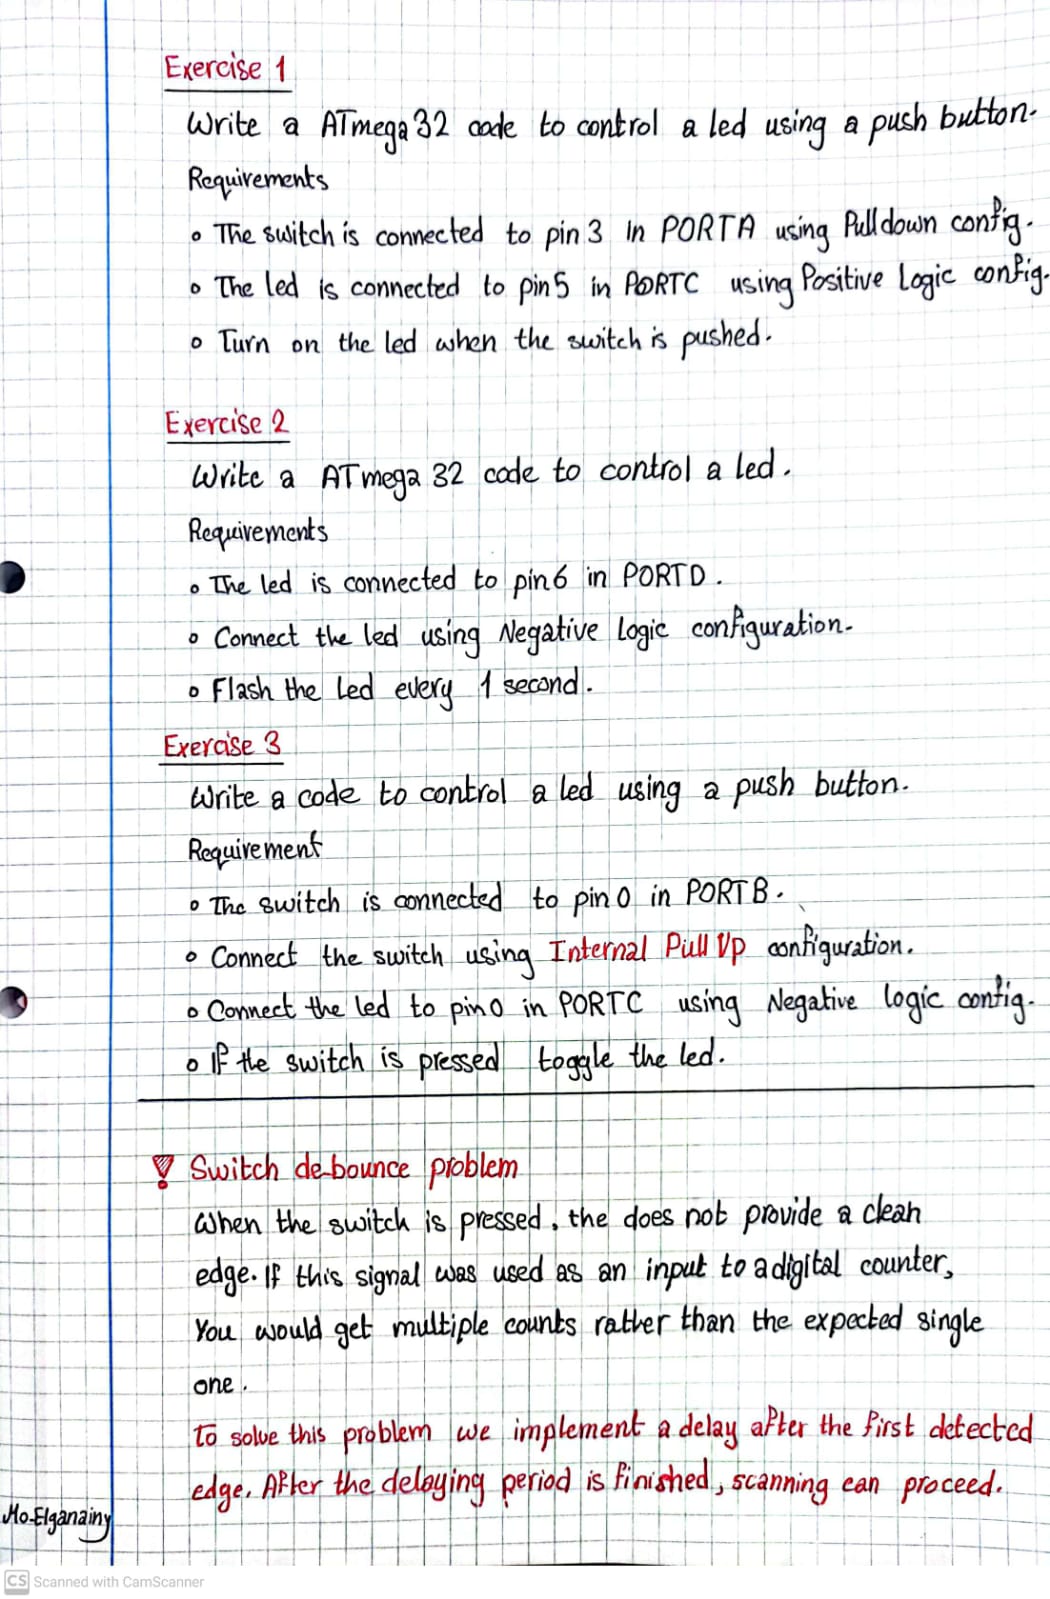 Exercise 1
Write a ATmega32 code to control a led using a push button.
Requirements
o The switch is connected to pin 3 in PORTA using Pull down config.
o The led is connected to pin5 in PORTC using Positive Logic config.
o Turn on the led when the switch is pushed.
Exercise 2
Write a ATmega 32 code to control a led.
Requirements
o The led is connected to pin6 in PORTD.
o Connect the led using Negative Logic configuration.
o Flash the led every 1 second.
Exercise 3
Write a code to control a led using a push button.
Requirement
o The switch is connected to pin 0 in PORTB.
o Connect the switch using Internal Pull Up configuration.
o Connect the led to pin0 in PORTC using Negative logic config.
o If the switch is pressed toggle the led.
! Switch de-bounce problem
When the switch is pressed, the does not provide a clean
edge. If this signal was used as an input to a digital counter,
You would get multiple counts rather than the expected single
one.
To solve this problem we implement a delay after the first detected
edge. After the delaying period is finished, scanning can proceed.
Mo-Elganainy
CS Scanned with CamScanner